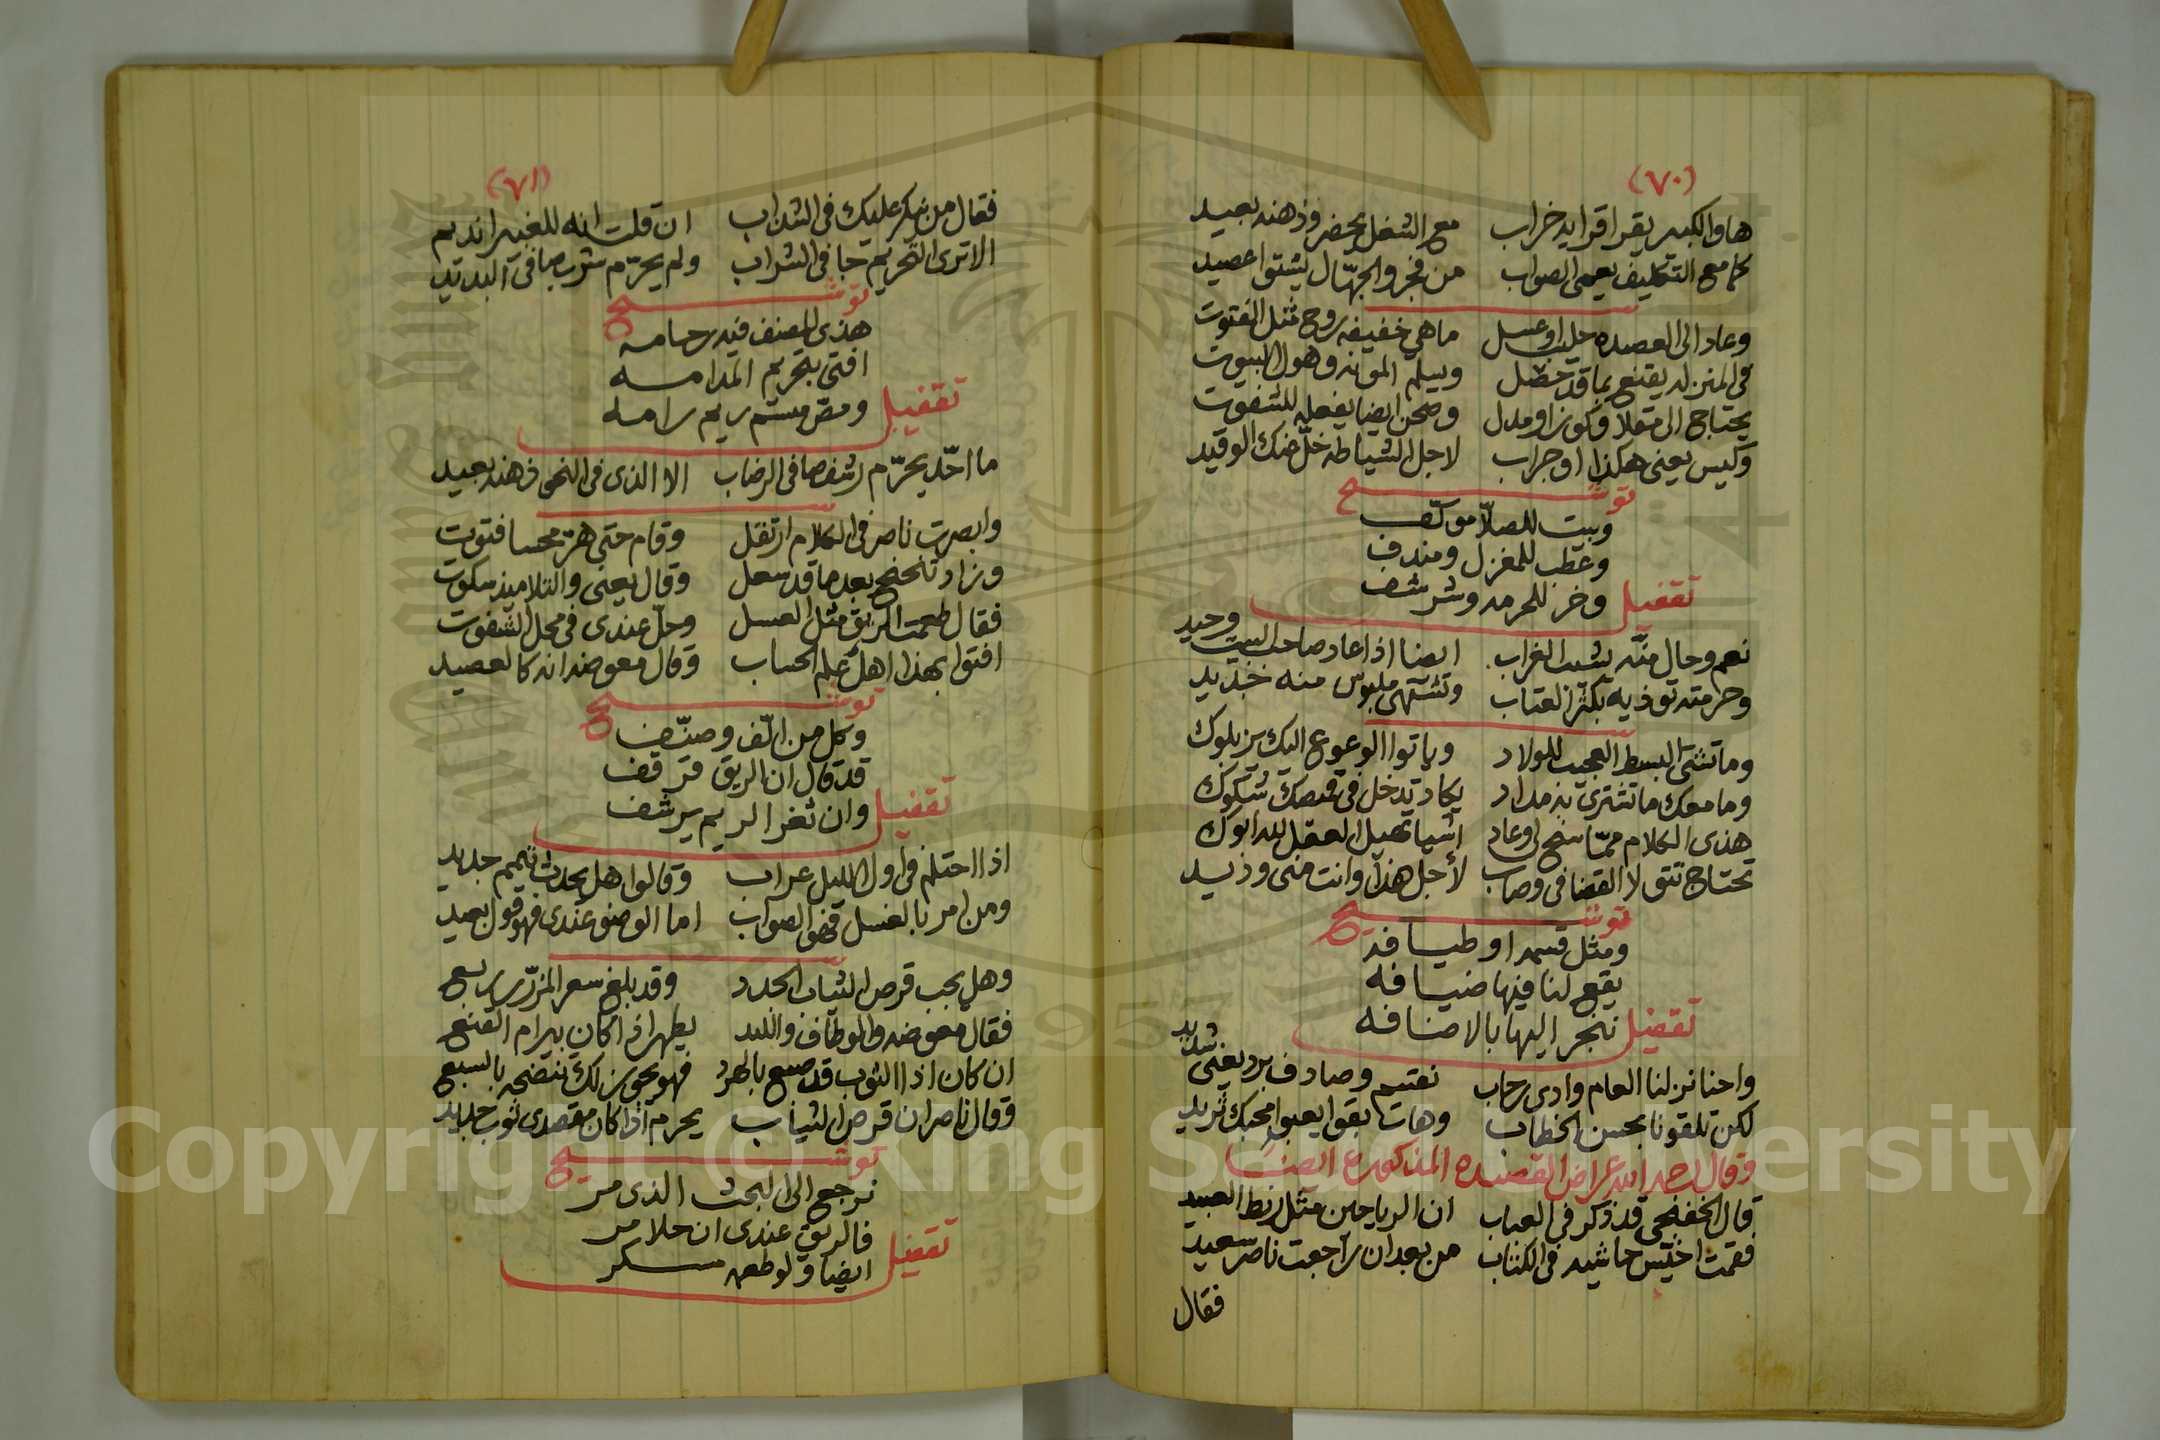 (٧٠)
هاوالكبير يقرا قرايه خراب مع الشغل يحضر وذهنه بعيد
كما مع التكليف يعمى الصواب من فجر والجهّال يشتوا عصيد
وعاد الى العصيده حلب او عسل ماهي خفيفه روح مثل الفتوت
في المنزله يقنع بما قد حصل ويسلم المونه وهول البيوت
يحتاج الى متقلا وكوز او مدل وصحن ايضا يفعله للشفوت
وكيس يعني هكذا او جراب لاجل الشياطه خلّ عنك الوقيد
توشيح
وبيت للصلا موكّف
وعطب للمغزل ومندف
تقفيل
وخز للحرمه وشرشف
نعم وحال منّه يشيب الغراب ايضا اذا عاد صاحب البيت وحيد
وحرمته توذيه بكثر العتاب وتشتهي ملبوس منه خديد
وما تشتى البسط العجيب للولاد وباتوا الوعوع اليك يزبلوك
وما معك ما تشتري به مداد يكاد تدخل في قميصك شكوك
هذى الكلام ممّا سنح لي وعاد اشيا تهيل العقل لله ابوك
تحتاج تتولا القضا في وصاب لأجل هذا وانت مني وزيد
توشيح
ومثل قسمه او طيافه
يقع لنا فيها ضيافه
تقفيل
ننجر اليها بالاضافه
واحنا نزلنا العام وادى رحاب نعتيم وصادف برد يعني شديد
لكن تلقونا بحسن الخطاب وهات بقوا يعبوا محبك ثريد
وقال رحمه الله عراض القصيده المذكوره ايضا
قال الخفنجي قد ذكر في العباب ان الرياحين مثل زبط العبيد
فقمت اخيّس حاشيه في الكتاب من بعد ان راجعت ناصر سعيد
فقال
(٧١)
فقال من ينكر عليك في الشراب ان قلت انه للغبيرا نديم
الا ترى التحريم جا في الشراب ولم يحرّم شرب صافي
توشيح
هذى المصنف فيه رسامه
افتى بتحريم المدامه
تقفيل
ومصّ مبسم ريم رامه
ما احّد يحرّم رشف صافي الرضاب الا الذي في النحو ذهنه بعيد
وابصرت ناصر في الكلام ارتقل وقام حتى هز محسا فتوت
وزاد تنحنح بعد ما قد سعل وقال يعني والتلاميذ سكوت
فقال طعمت الريق مثل العسل وحل عندى في محل الشفوت
افتوا بهذا اهل علم الحساب وقال معوضه انه كالعصيد
توشيح
وكل من الّف وصنّف
قد قال ان الريق قرقف
تقفيل
وان ثغر الريم يرشف
اذا احتلم في اول الليل عراب وقالوا هل يحدث تيمم جديد
ومن امر بالغسل فهو الصواب اما الوضو عندى فهو قول بعيد
وهل يجب قرص الثياب الجدد وقد بلغ سعر المزرّر ربع
فقال معوضه والوطاف واللبد يطهر اذا كان بيرام القنع
ان كان اذا الثوب قد صبع بالهرد فهو يجوز لك تنضحه بالسبع
وقال ناصر ان قرص الثياب يحرم اذا كان مقصدى ثوب جديد
توشيح
نرجع الى البحث الذى مر
فالريق عندى ان حلا مر
تقفيل
ايضا ولو طعمه سكر